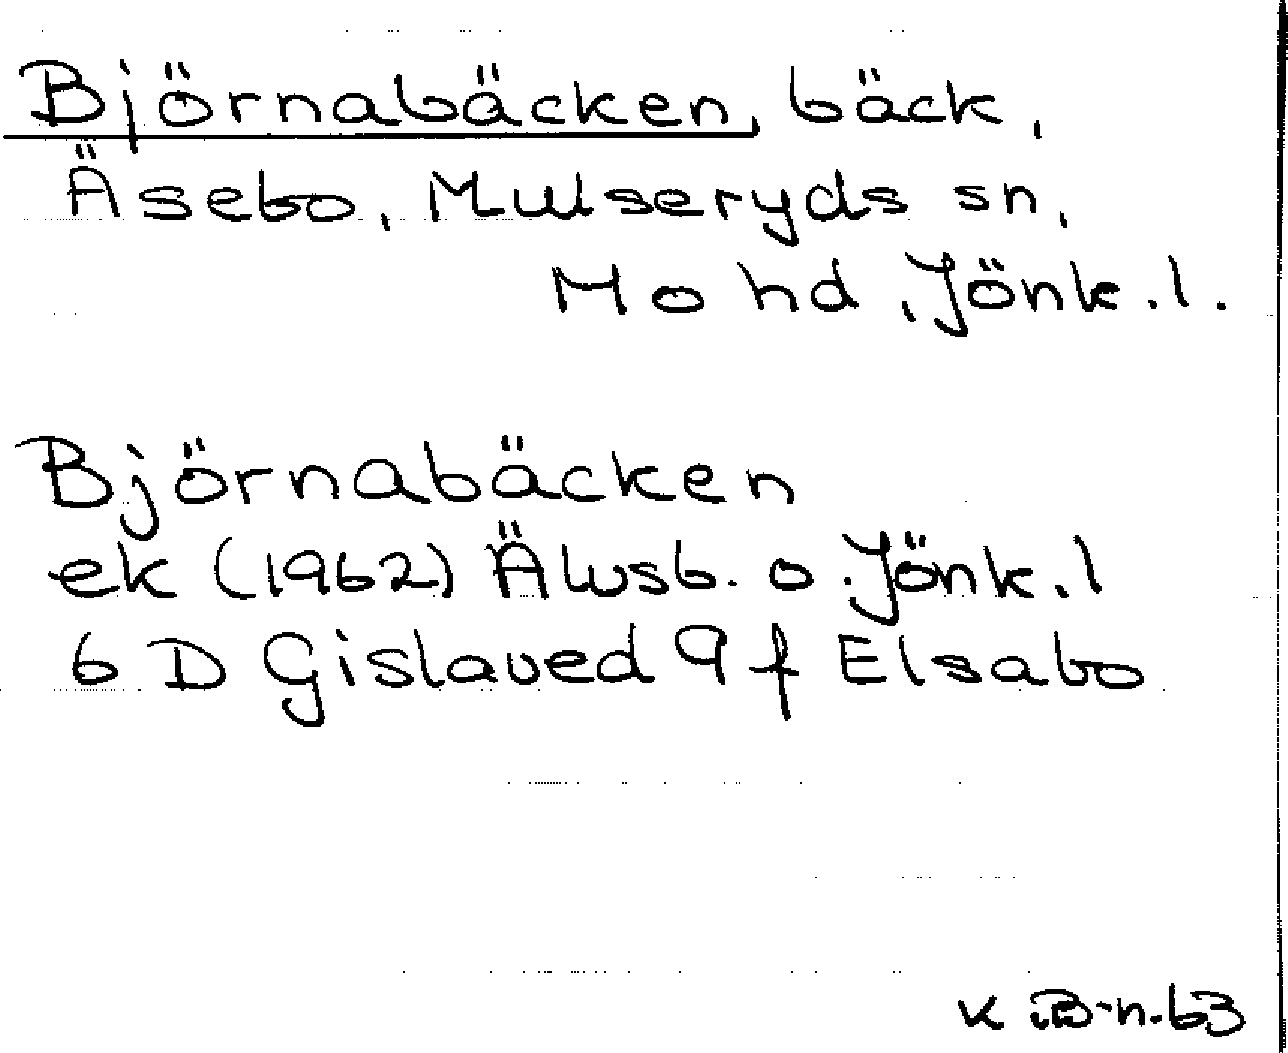 Björnabäcken, bäck,
Äsebo, Mulseryds sn,
Mo hd, Jönk.l.
Björnabäcken
ek (1962) Älvsb. o. Jönk.l
6 D Gislaved 9 f Elsabo
K.B-n.63